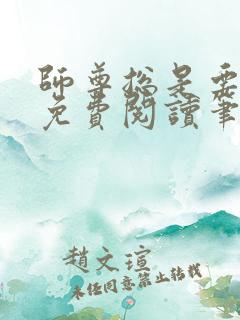 師尊總是要
免費閱讀筆
趙文瑄
未任同意禁止转载